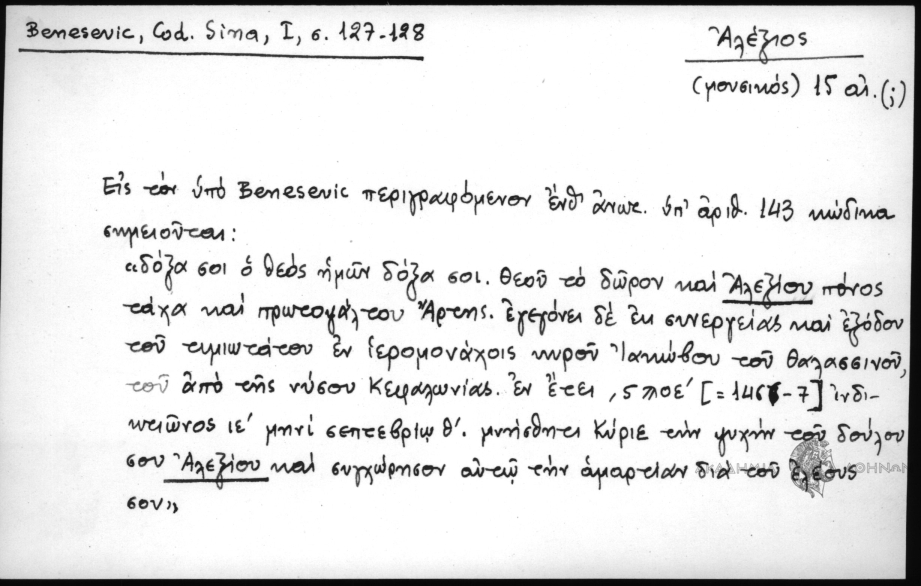 Benesevic, Cod. Sina, I, σ. 127-128
Ἀλέξιος
(μουσικός) 15 αἰ. (;)
Εἰς τὸν ὑπὸ Benesevic περιγραφόμενον ἔνθ' ἀνωτ. ὑπ' ἀριθ. 143 κώδικα
σημειοῦται:
«δόξα σοι ὁ θεός ἡμῶν δόξα σοι. Θεοῦ τὸ δῶρον καὶ Ἀλεξίου πόνος
τάχα καὶ πρωτοψάλτου Ἄρτης. ἐγεγόνει δὲ ἐκ συνεργείας καὶ ἐξόδου
τοῦ τιμιωτάτου ἐν ἱερομονάχοις κυροῦ Ἰακώβου τοῦ θαλασσινοῦ,
τοῦ ἀπὸ τῆς νήσου Κεφαλωνίας. Ἐν ἔτει ,ϛϡοε' [=1466-7] ἰνδι-
κτιῶνος ιε' μηνί σεπτεβρίῳ θ'. μνήσθητι Κύριε τὴν ψυχήν τοῦ δούλου
σου Ἀλεξίου καὶ συγχώρησον αὐτῷ τὴν ἁμαρτίαν διά τοῦ ἐλέους
σου»
ΑΚΑΔΗΜΙΑ ΑΘΗΝΩΝ